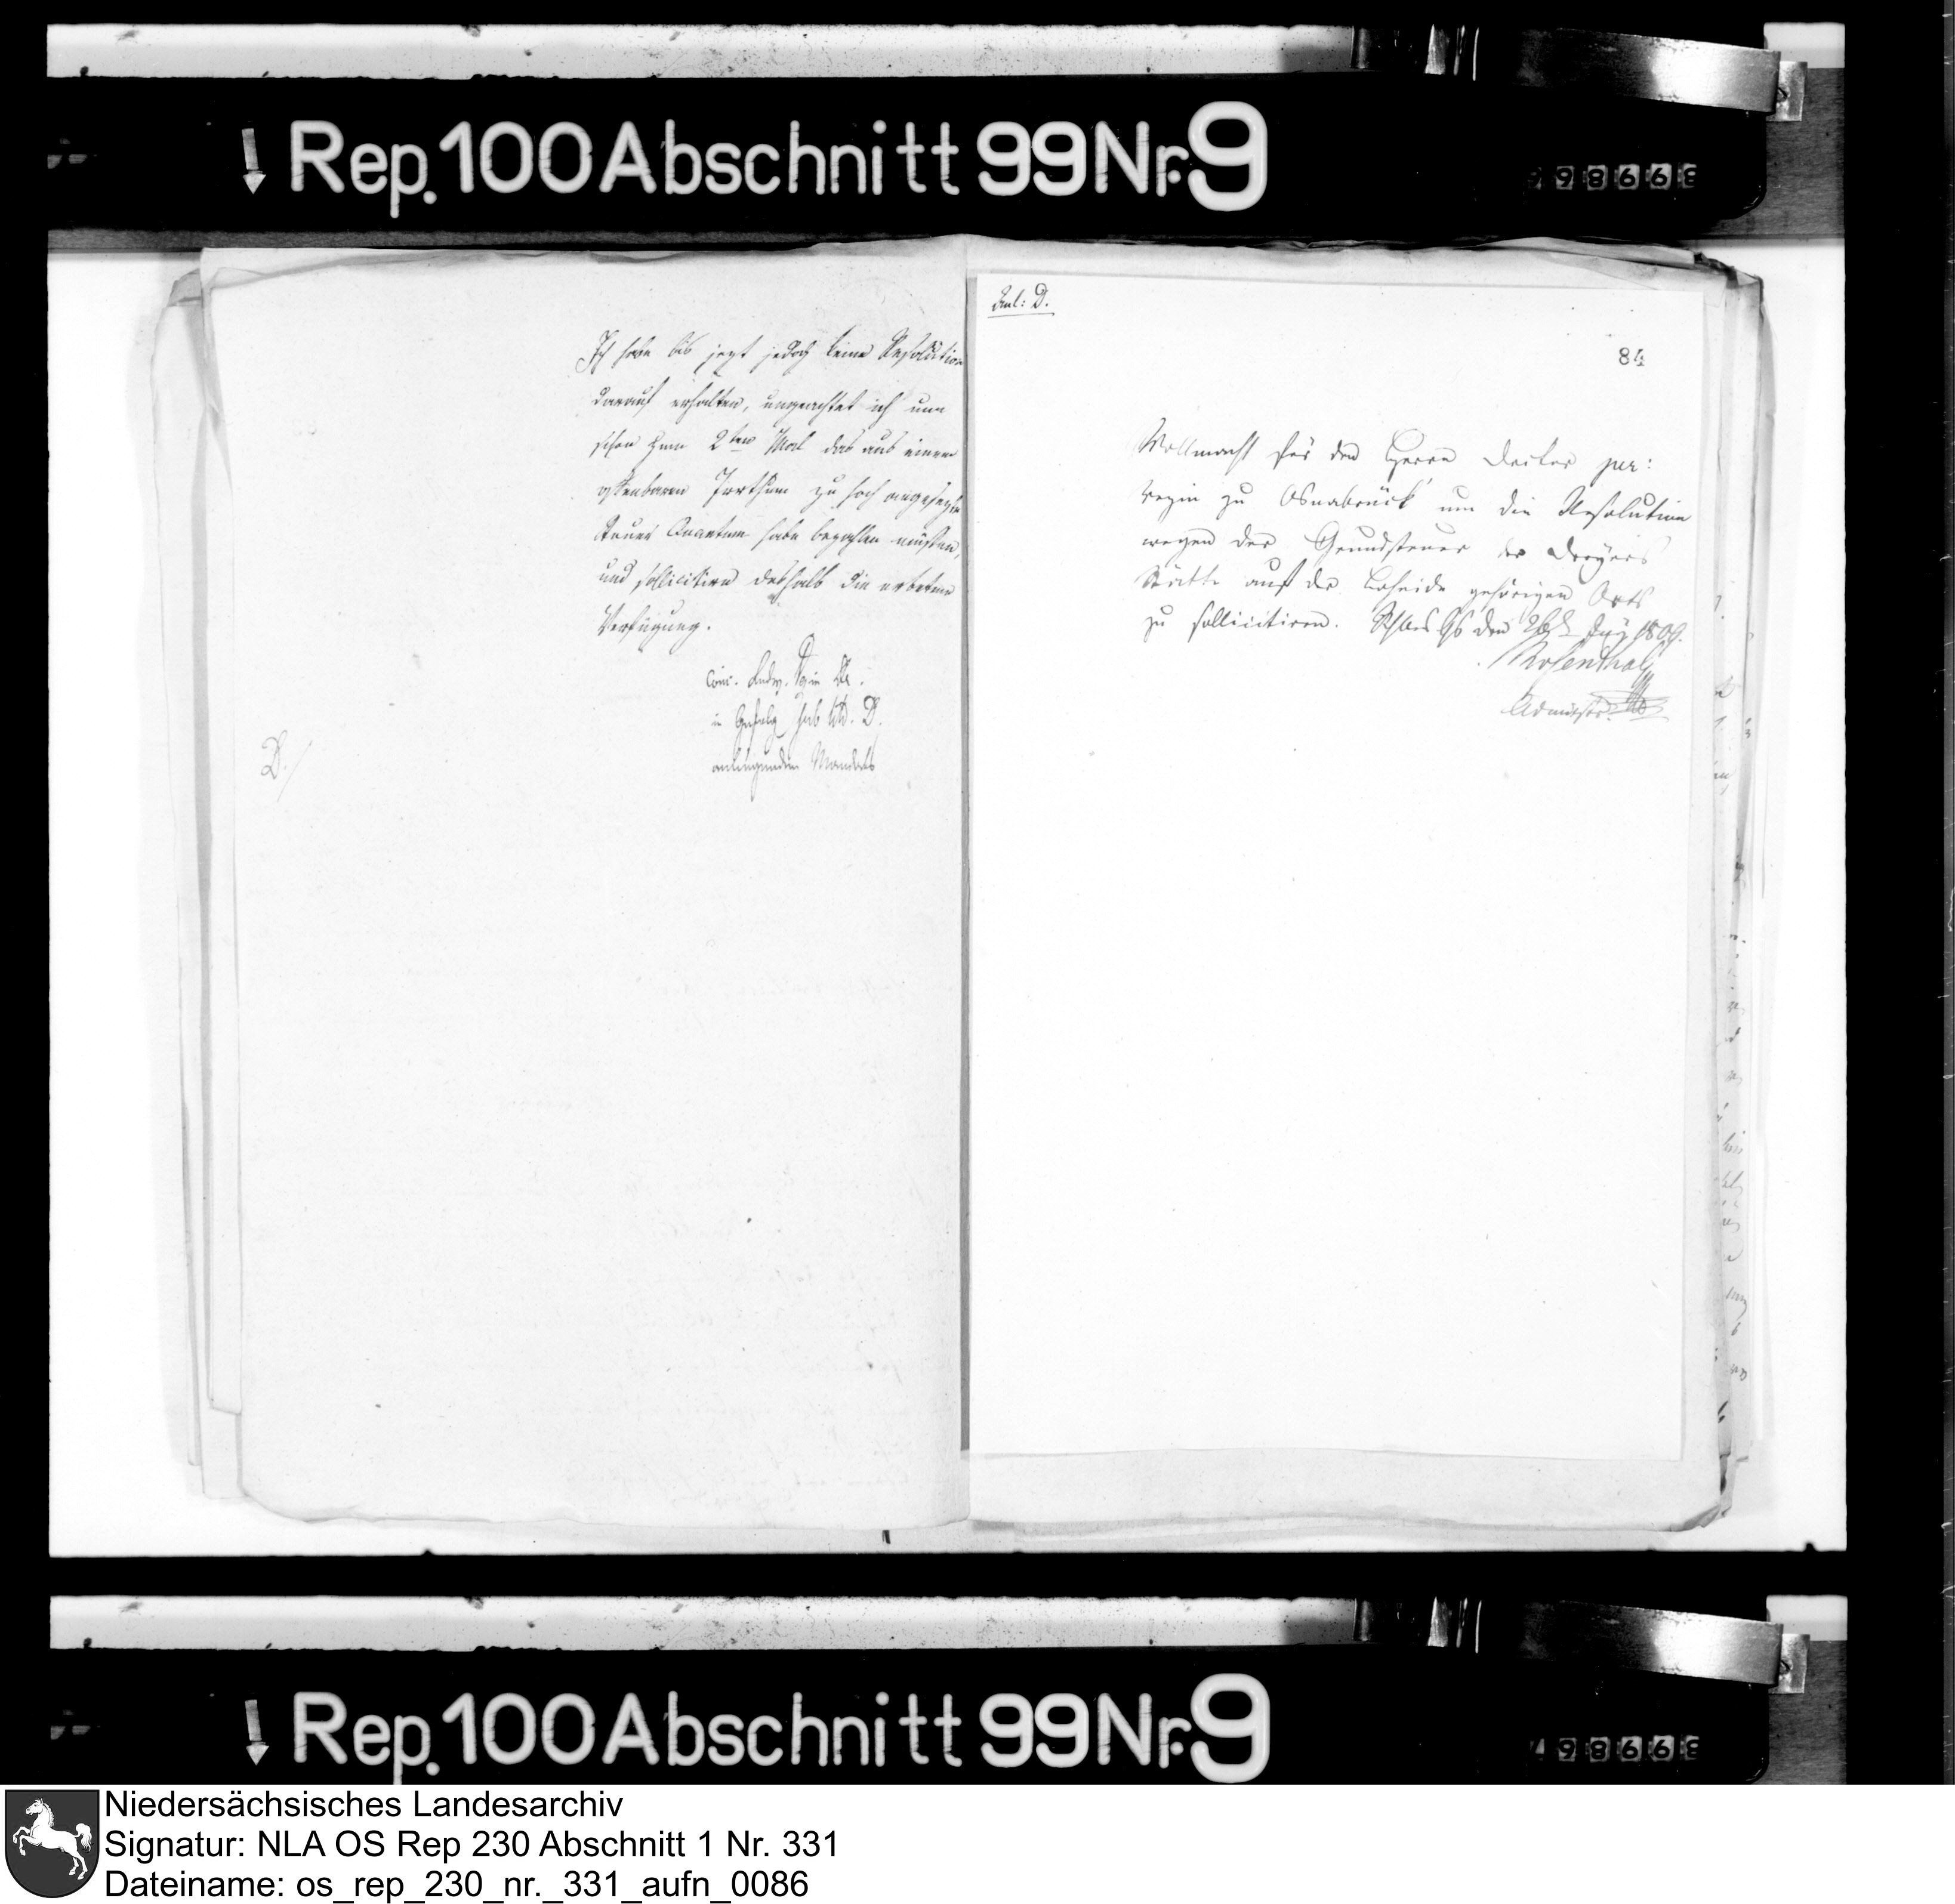 Rep. 100 Abschnitt 99 Nr. 9
98668
Ich habe bis jezt jedoch keine Resolution
darauf erhalten, ungeachtet ich nun
schon zum 2ten Mal das aus einem
offenbaren Irrthum zu hoch angesezte
Steuer Quantum habe bezahlen müssen,
und sollicitire deshalb die erbetene
Verfügung.
in Gefolg sub lit. D.
anliegenden Mandats
D./
Anl: D.
84
Vollmacht für den Herrn Doctor
zu Osnabrück um die Resolution
wegen der Grundsteuer der Dreyers
Stätte auf der gehörigen Orts
zu sollicitiren. den 26t 1809.
Rosenthal
Rep. 100 Abschnitt 99 Nr. 9
98668
Niedersächsisches Landesarchiv
Signatur: NLA OS Rep 230 Abschnitt 1 Nr. 331
Dateiname: os_rep_230_nr._331_aufn_0086